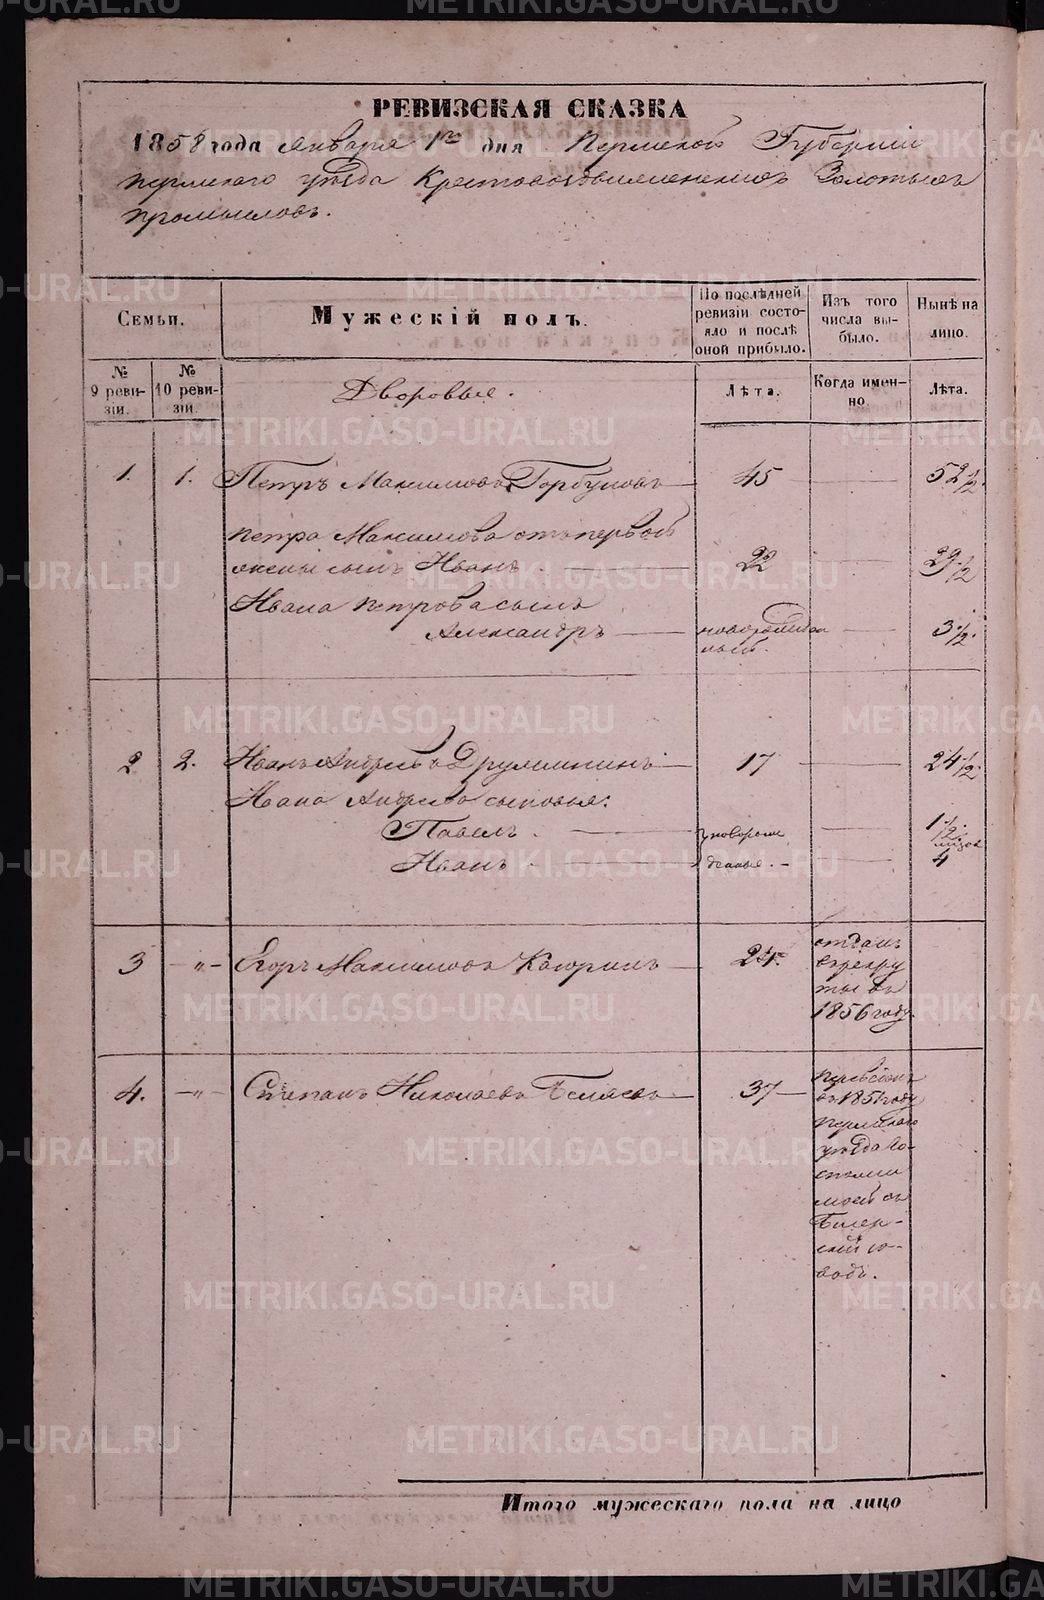 РЕВИЗСКАЯ СКАЗКА
1858 года января 1го дня Пермской Губернiи
пермскаго уѣзда Крестовоздвиженскихъ Золотыхъ
промысловъ.
Семьи.
Мужескiй полъ.
По послѣдней ревизiи состояло и послѣ оной прибыло.
Изъ того числа выбыло.
Нынѣ на лицо.
№ 9 ревизiи.
№ 10 ревизiи.
Дворовые.
Лѣта.
Когда именно.
Лѣта.
1. 1. Петръ Максимовъ Горбуновъ 45 52 1/2
петра Максимова отъ первой
жены сынъ Иванъ 22 29 1/2
Ивана петрова сынъ
Александръ новорожден 3 1/2
ный.
2 2. Иванъ Андреевъ 17 24 1/2
Ивана Андреева сыновья:
Павелъ новорож 1 1/2
Иванъ денные. 4
3 -"- Егоръ Максимовъ 24. отданъ
в рекру
ты въ
1856 году
4. -"- Степанъ Николаевъ Беляевъ 37 переведенъ
въ 1851 году
пермскаго
уѣзда во
имен
моей въ
Бисер-
скiй за-
водъ.
Итого мужескаго пола на лицо
METRIKI.GASO-URAL.RU